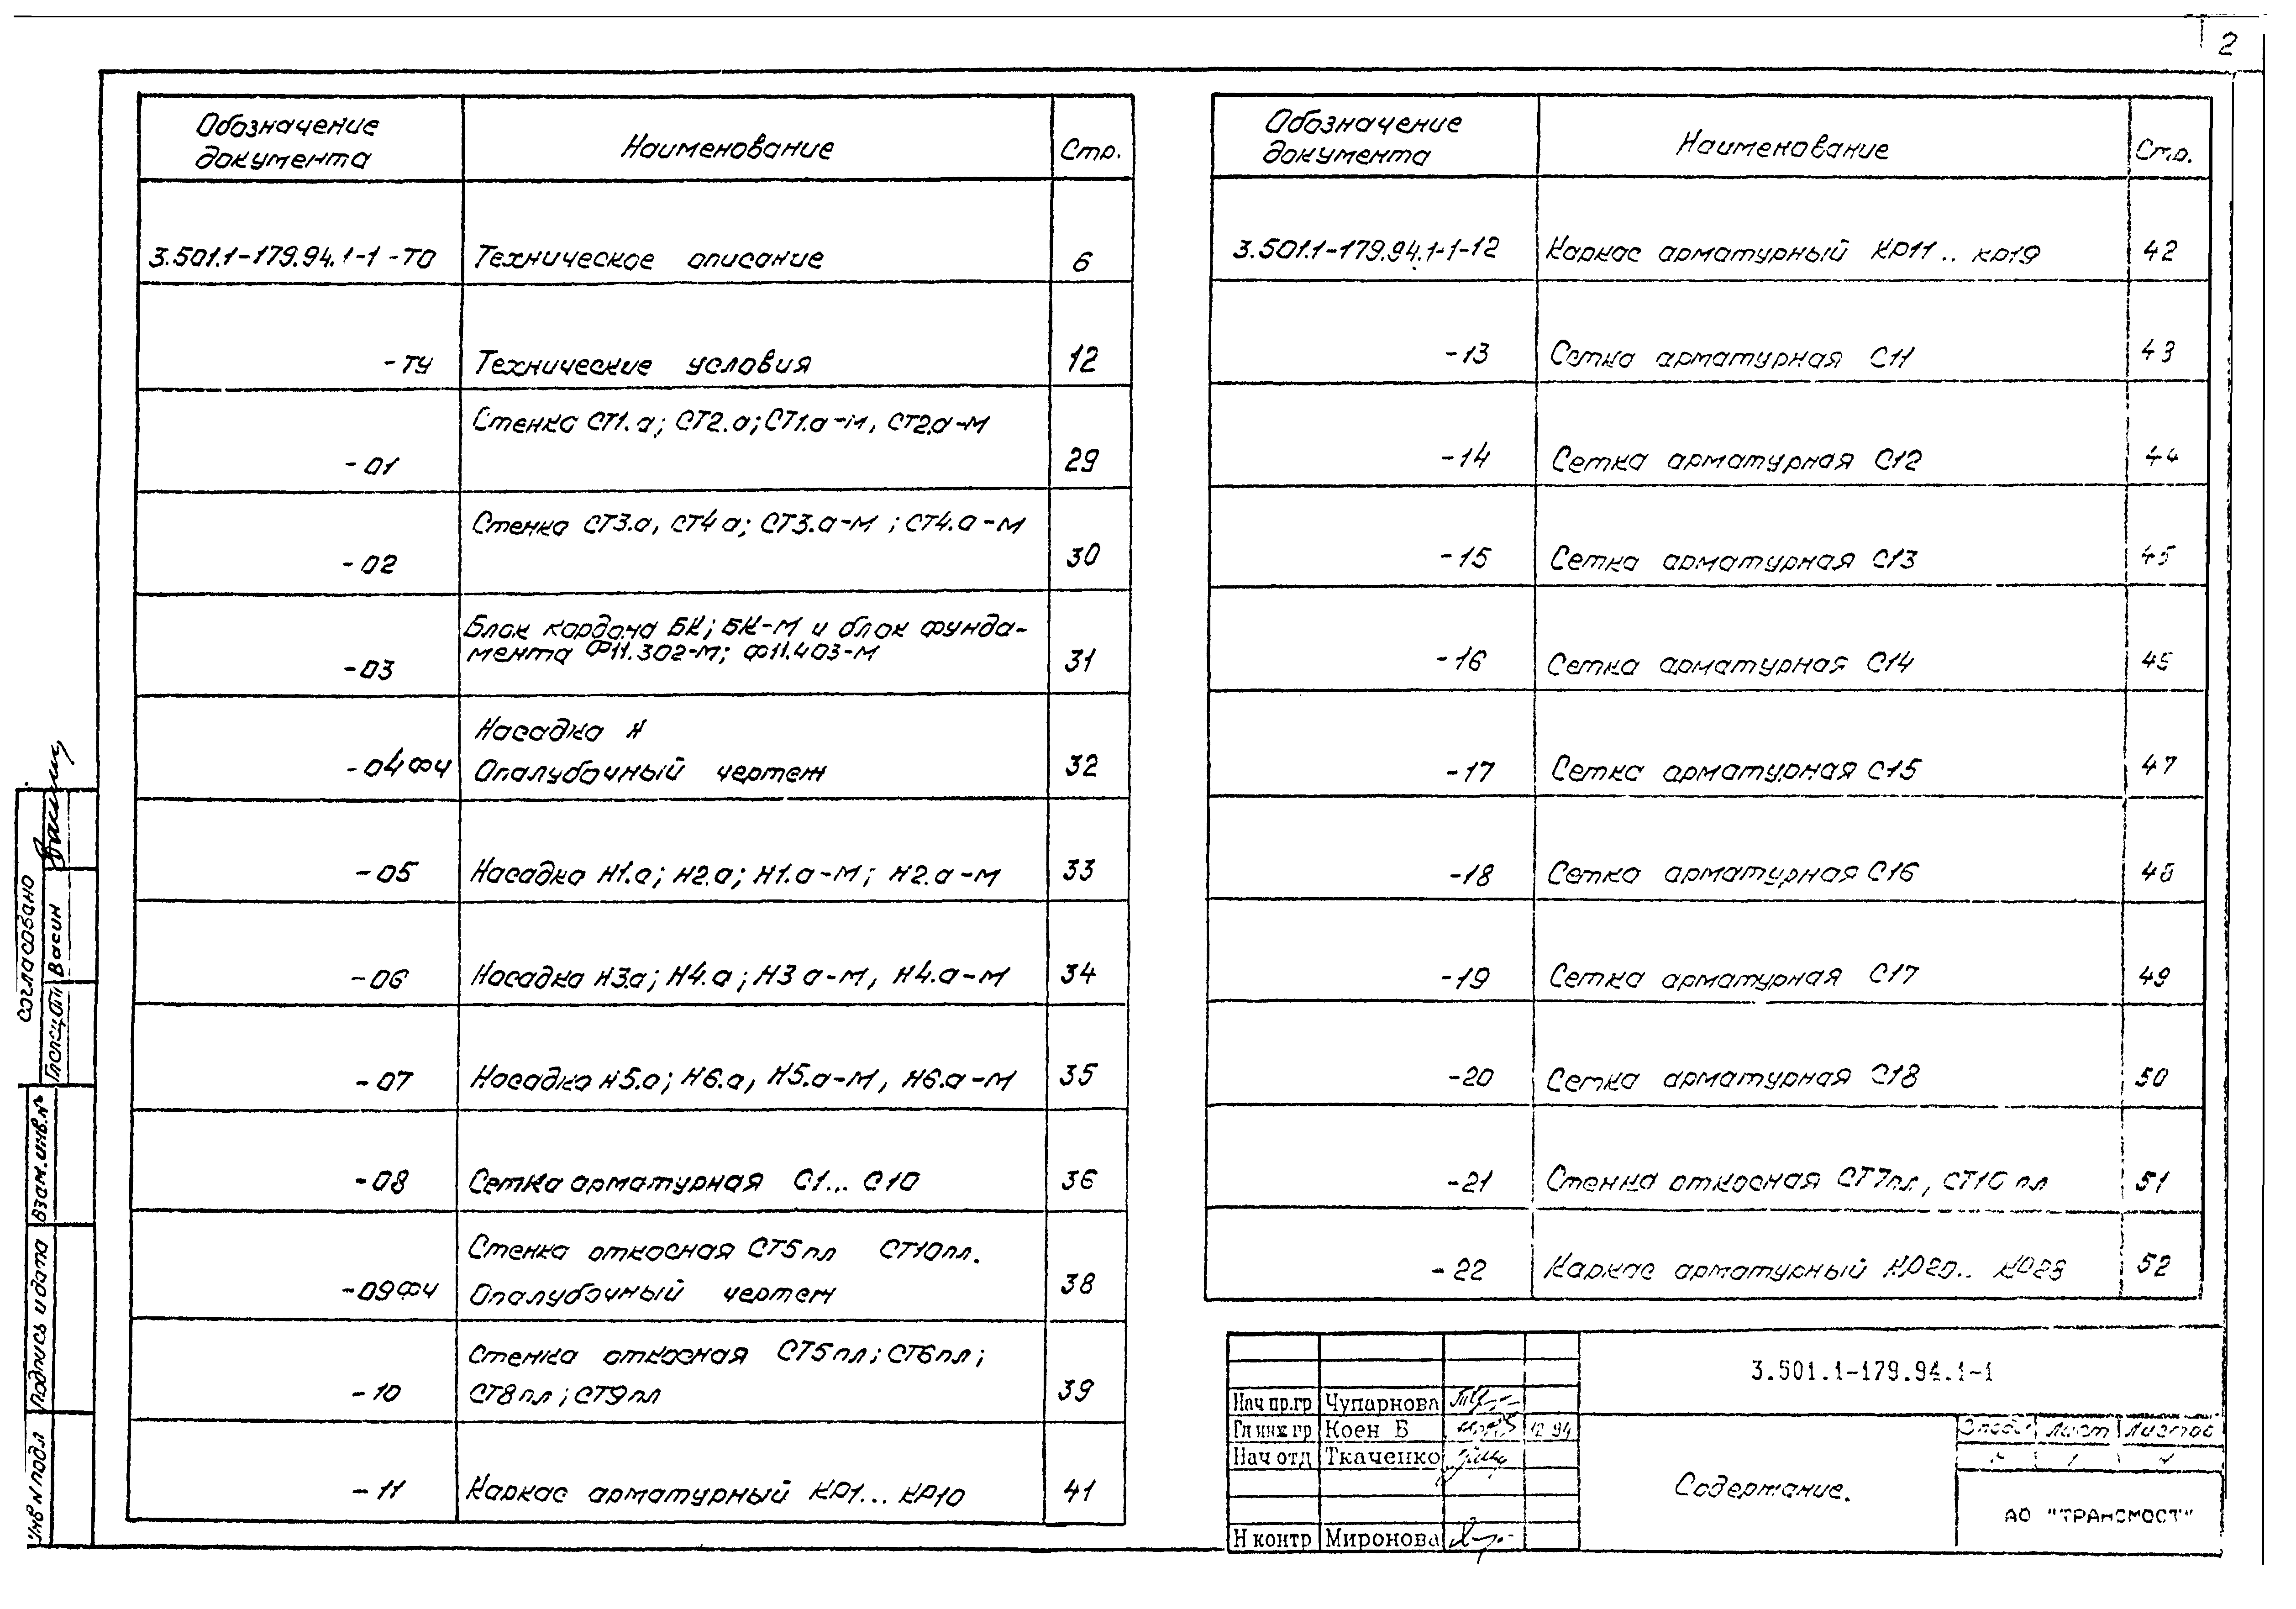 2
Обозначение документа Наименование Стр.
3.501.1-179.94.1-1-ТО Техническое описание 6
-ТУ Технические условия 12
-01 Стенка СТ1.а; СТ2.а; СТ1.а-М, СТ2.а-М 29
-02 Стенка СТ3.а, СТ4 а; СТ3.а-М; СТ4.а-М 30
-03 Блок кордона БК; БК-М и блок фунда-
мента Ф11.302-М; Ф11.403-М 31
Насадка Н
-04ФЧ Опалубочный чертеж 32
-05 Насадка Н1.а; Н2.а; Н1.а-М; Н2.а-М 33
-06 Насадка Н3а; Н4.а; Н3 а-М, Н4.а-М 34
-07 Насадка Н5.а; Н6.а, Н5.а-М, Н6.а-М 35
-08 Сетка арматурная С1... С10 36
Стенка откосная СТ5пл СТ10пл.
-09ФЧ Опалубочный чертеж 38
Стенка откосная СТ5пл; СТ6пл;
-10 СТ8пл; СТ9пл 39
-11 Каркас арматурный КР1... КР10 41
Обозначение документа Наименование Стр.
3.501.1-179.94.1-1-12 Каркас арматурный КР11.. КР19 42
-13 Сетка арматурная С11 43
-14 Сетка арматурная С12 44
-15 Сетка арматурная С13 45
-16 Сетка арматурная С14 46
-17 Сетка арматурная С15 47
-18 Сетка арматурная С16 48
-19 Сетка арматурная С17 49
-20 Сетка арматурная С18 50
-21 Стенка откосная СТ7пл, СТ10 пл 51
-22 Каркас арматурный КР20.. КР28 52
3.501.1-179.94.1-1
Нач пр.гр Чупарнова
Гл инж гр Коен Б 12 94
Нач отд Ткаченко
Н контр Миронова
Содержание.
Лист Листов
АО "ТРАНСМОСТ"
Согласовано
Васин
Взам.инв.№
Подпись и дата
Инв N подл